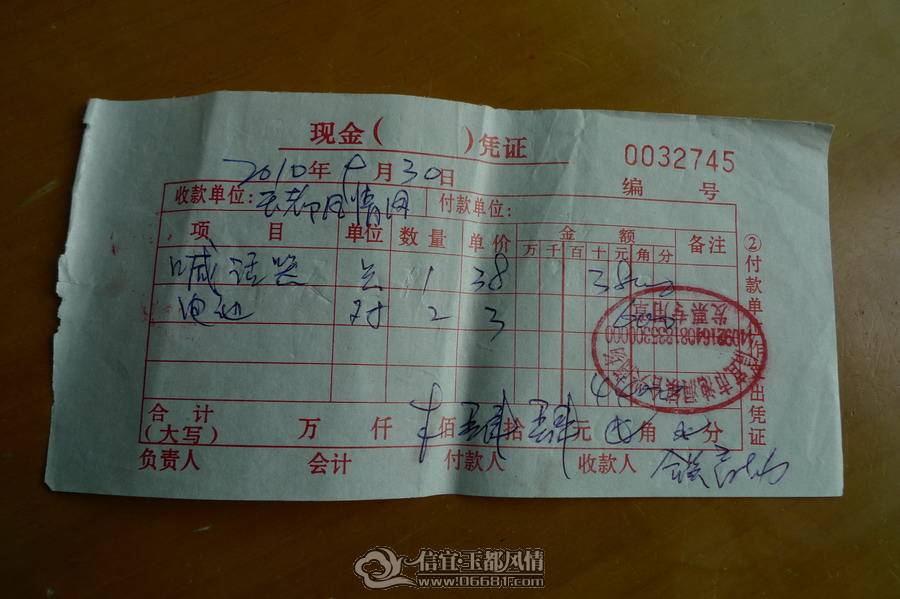 现金( )凭证
0032745
2010年9月30日
编 号
收款单位:玉都风情网 付款单位:
项 目 单位 数量 单价 金额 备注
万 千 百 十 元 角 分
喊话器 只 1 38 3800
电池 对 2 3 600
4400
合计 万 仟 佰 肆 拾 肆 元 角 分
(大写)
负责人 会计 付款人 收款人
②付款单位作支出凭证
发票专用章
信宜·玉都风情
www.06681.com